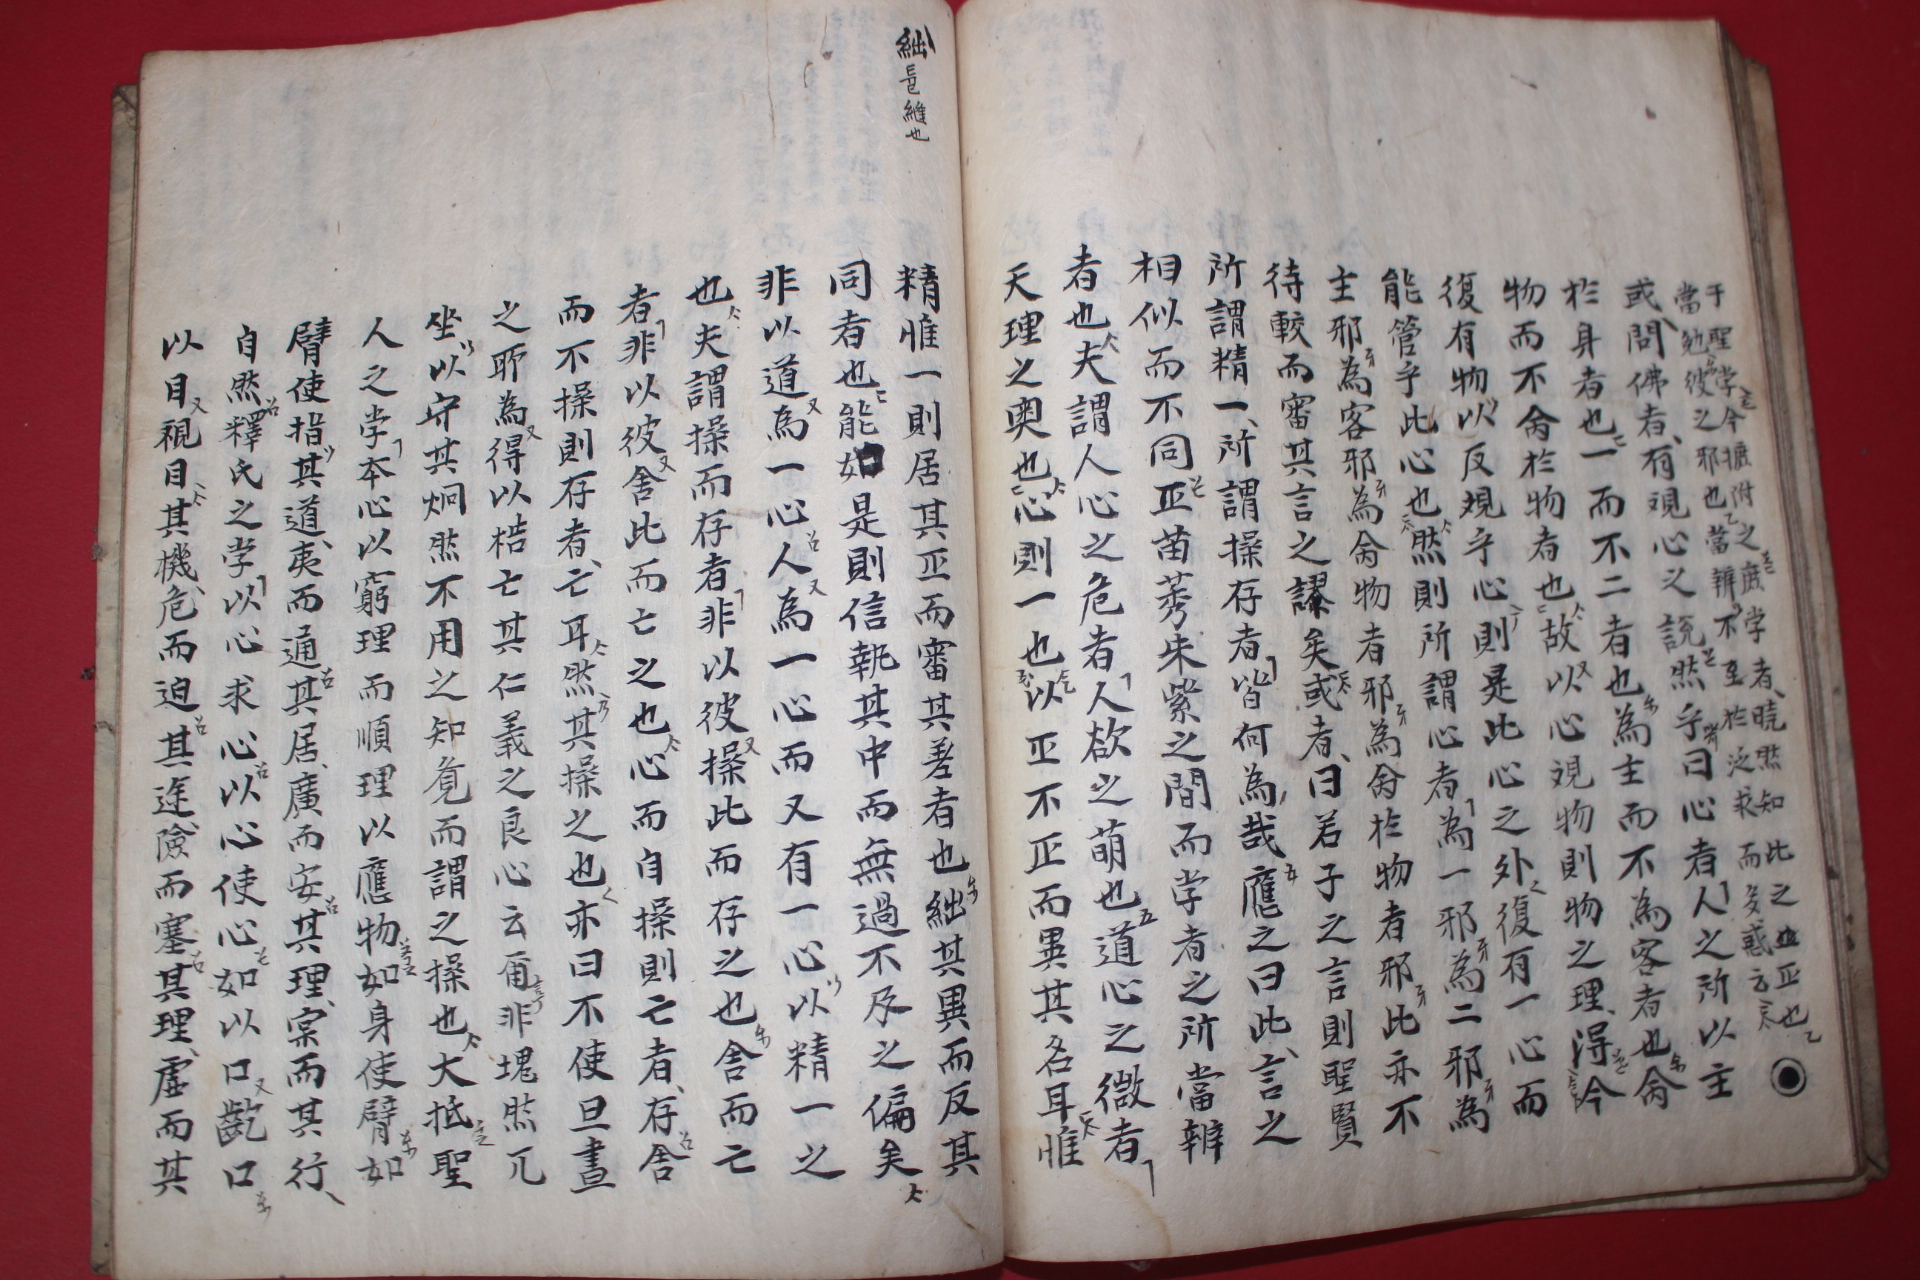 于聖学今摭附之庶学者暁然知此之正也
當勉彼之邪也當辨不至於泛求而多惑云
或問佛者有覌心之説然乎曰心者人之所以主
於身者也一而不二者也為主而不為客者也命
物而不命於物者也故以心覌物則物之理得今
復有物以反覌乎心則是此心之外復有一心而
能管乎此心也然則所謂心者為一邪為二邪為
主邪為客邪為命物者邪為命於物者邪此亦不
待較而審其言之謬矣或者曰若子之言則聖賢
所謂精一所謂操存者皆何為哉應之曰此言之
相似而不同正苗莠朱紫之間而学者之所當辨
者也夫謂人心之危者人欲之萌也道心之微者
天理之奥也心則一也以正不正而異其名耳惟
精惟一則居其正而審其差者也絀其異而反其
同者也能如是則信執其中而無過不及之偏矣
非以道為一心人為一心而又有一心以精一之
也夫謂操而存者非以彼操此而存之也舎而亡
者非以彼舎此而亡之也心而自操則亡者存舎
而不操則存者亡耳然其操之也亦曰不使旦晝
之所為得以梏亡其仁義之良心云爾非塊然兀
坐以守其炯然不用之知覔而謂之操也大抵聖
人之学本心以窮理而順理以應物如身使臂如
臂使指其道夷而通其居廣而安其理実而其行
自然釋氏之学以心求心以心使心如以口齕口
以目視目其機危而迫其途險而塞其理虚而其
絀
縫也